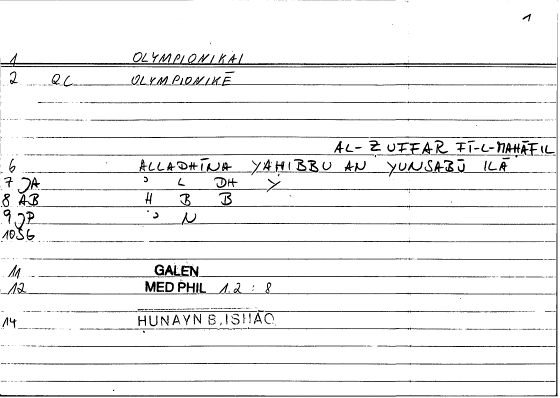 1
1 OLYMPIONIKAI
2 QC OLYMPIONIKĒ
AL-ẒUFFAR FĪ-L-MAḤĀFIL
6 ALLADHĪNA YAḤIBBU AN YUNSABŪ ILĀ
7 JA ʾ L DH Y
8 AB Ḥ B B
9 JP ʾ N
10 SG
11 GALEN
12 MED PHIL 1.2 : 8
14 HUNAYN B. ISHAQ